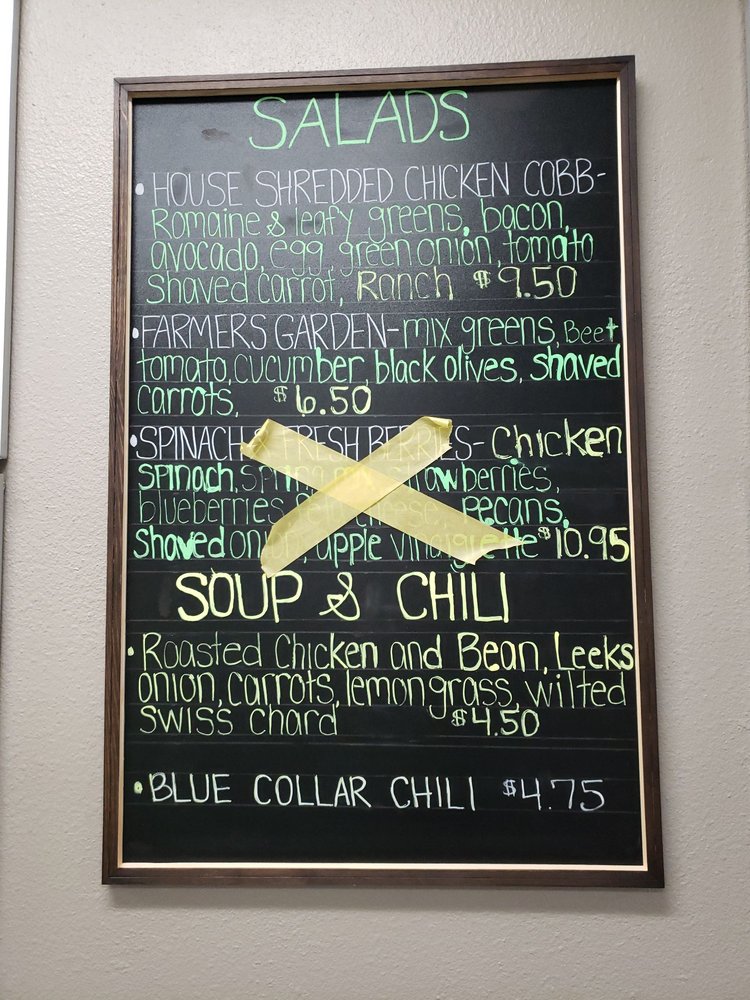 SALADS
• HOUSE SHREDDED CHICKEN COBB-
Romaine & leafy greens, bacon,
avocado, egg, green onion, tomato
shaved carrot, Ranch $9.50
• FARMERS GARDEN-mix greens, Beet
tomato, cucumber, black olives, shaved
carrots, $6.50
• SPINACH & FRESH BERRIES- Chicken
spinach, spring strawberries,
blueberries, cheese, pecans,
shaved onion, apple vinaigrette $10.95
SOUP & CHILI
• Roasted Chicken and Bean, Leeks
onion, carrots, lemongrass, wilted
swiss chard $4.50
• BLUE COLLAR CHILI $4.75